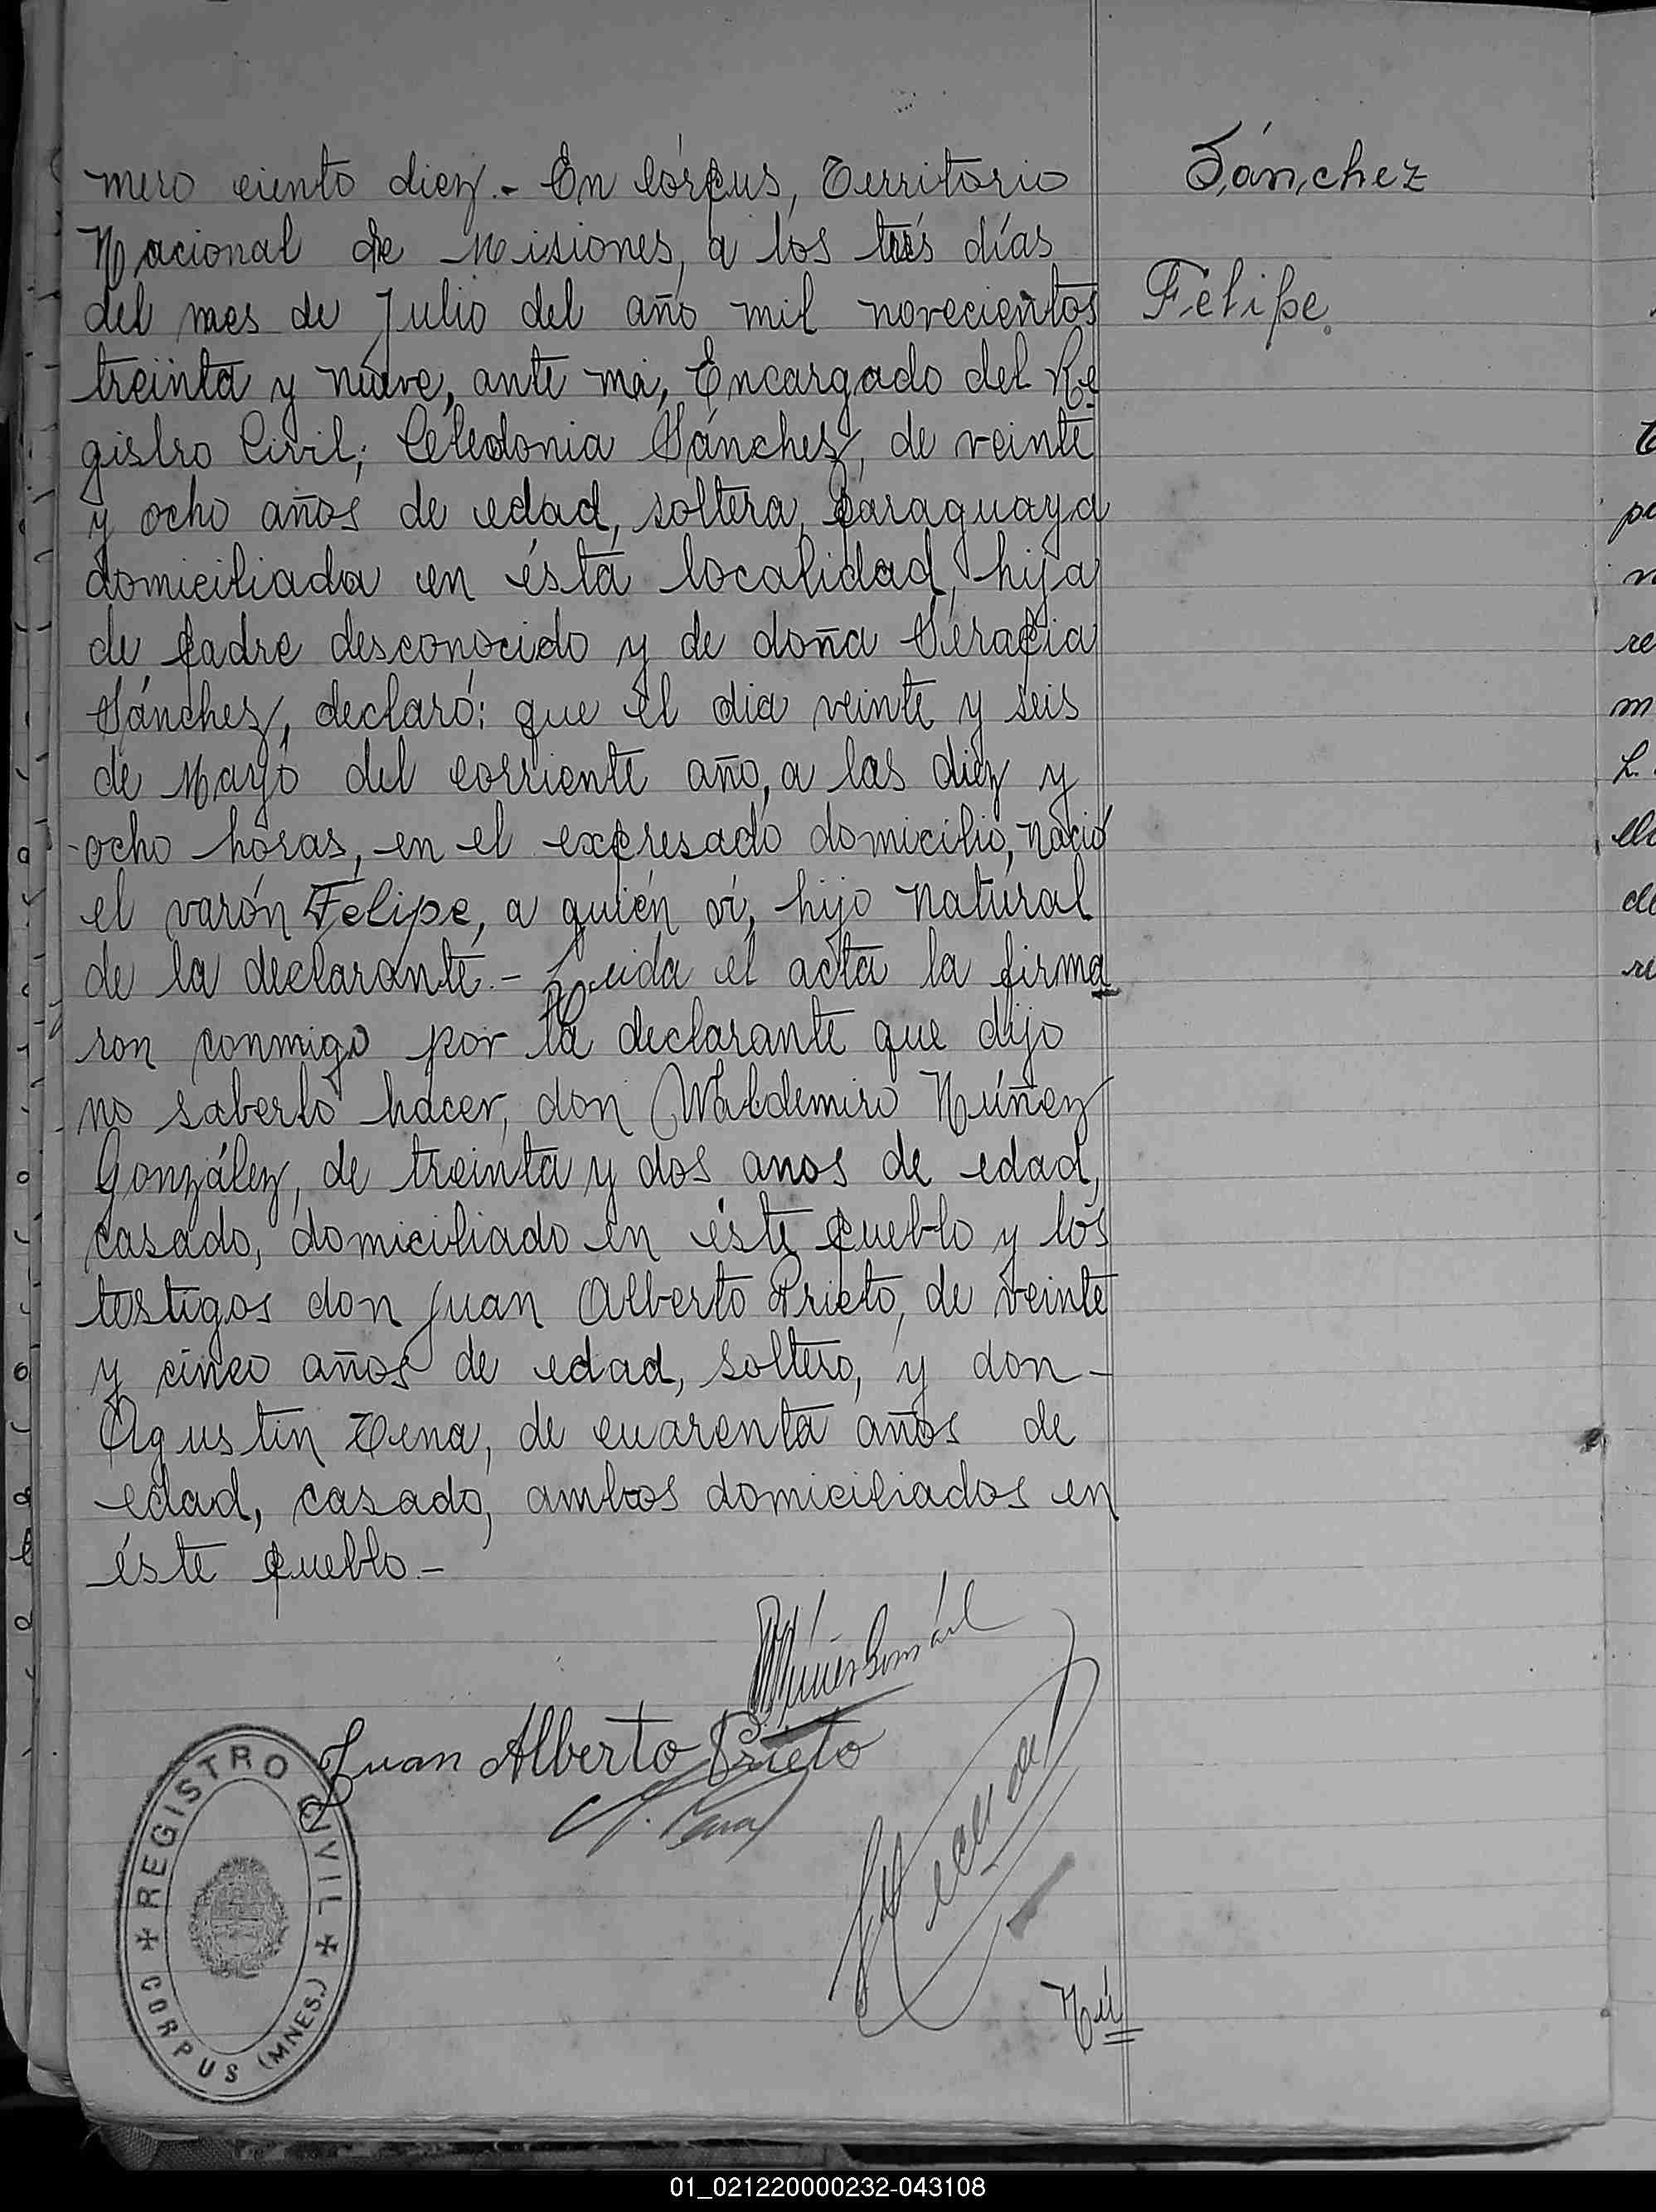 mero ciento diez.- En Córpus, Territorio
Nacional de Misiones, a los tres días
del mes de Julio del año mil novecientos
treinta y nueve, ante mi, Encargado del Re
gistro Civil; Celedonia Sánchez, de veinte
y ocho años de edad, soltera, paraguaya
domiciliada en ésta localidad, hija
de padre desconocido y de doña Serapia
Sánchez, declaró: que el dia veinte y seis
de Mayo del corriente año, a las diez y
ocho horas, en el expresado domicilio, nació
el varón Felipe, a quién vi, hijo natural
de la declarante.- Leida el acta la firma
ron conmigo por la declarante que dijo
no saberlo hacer, don Waldemiro Núñez
González, de treinta y dos anos de edad,
casado, domiciliado en éste pueblo y los
testigos don Juan Alberto Prieto, de veinte
y cinco años de edad, soltero, y don -
Agustin Zena, de cuarenta años de
edad, casado, ambos domiciliados en
éste pueblo.-
Sánchez
Felipe.
Juan Alberto Prieto
REGISTRO CIVIL
CORPUS (MNES.)
Nú
01_021220000232-043108